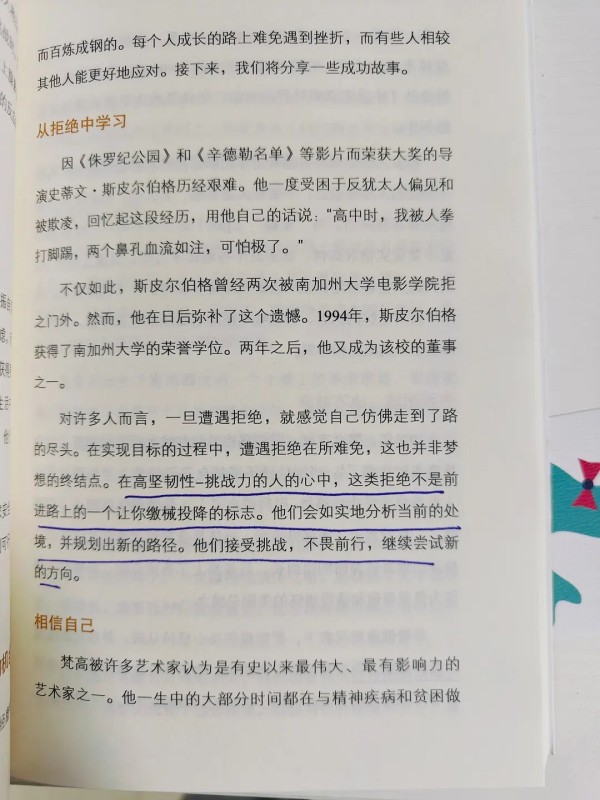 而百炼成钢的。每个人成长的路上难免遇到挫折，而有些人相较
其他人能更好地应对。接下来，我们将分享一些成功故事。
从拒绝中学习
因《侏罗纪公园》和《辛德勒名单》等影片而荣获大奖的导
演史蒂文·斯皮尔伯格历经艰难。他一度受困于反犹太人偏见和
被欺凌，回忆起这段经历，用他自己的话说："高中时，我被人拳
打脚踢，两个鼻孔血流如注，可怕极了。"
不仅如此，斯皮尔伯格曾经两次被南加州大学电影学院拒
之门外。然而，他在日后弥补了这个遗憾。1994年，斯皮尔伯格
获得了南加州大学的荣誉学位。两年之后，他又成为该校的董事
之一。
对许多人而言，一旦遭遇拒绝，就感觉自己仿佛走到了路
的尽头。在实现目标的过程中，遭遇拒绝在所难免，这也并非梦
想的终结点。在高坚韧性-挑战力的人的心中，这类拒绝不是前
进路上的一个让你缴械投降的标志。他们会如实地分析当前的处
境，并规划出新的路径。他们接受挑战，不畏前行，继续尝试新
的方向。
相信自己
梵高被许多艺术家认为是有史以来最伟大、最有影响力的
艺术家之一。他一生中的大部分时间都在与精神疾病和贫困做